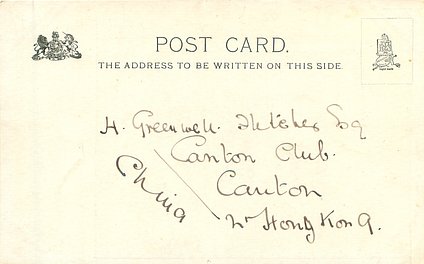 POST CARD.
THE ADDRESS TO BE WRITTEN ON THIS SIDE.
H. Greenwell. Fletcher Esq
Canton Club.
Canton
China
Nr Hong Kong.